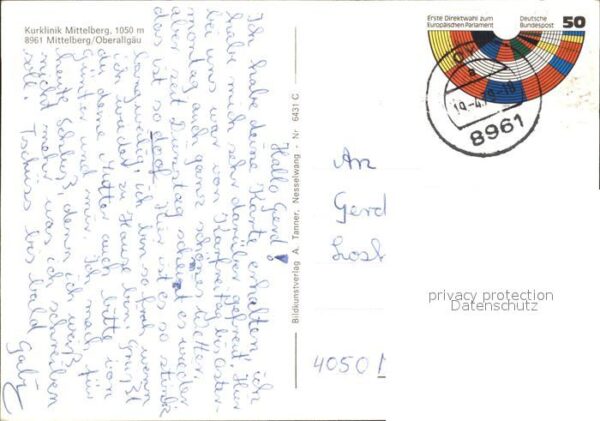 Kurklinik Mittelberg, 1050 m
8961 Mittelberg/Oberallgäu
Erste Direktwahl zum
Europäischen Parlament
Deutsche
Bundespost
50
19.-4.79-18
8961
Hallo Gerd!
Ich habe deine Karte erhalten, ich
habe mich sehr darüber gefreut. Hier
bei uns war von Karfreitag bis Oster-
montag auch ganz schönes Wetter,
aber seit Dienstag schneit es wieder
das ist so doof. Hier ist es so stink
langweilig, ich bin so froh wenn
ich wieder zu Hause bin. Grüßt
du deine Mutter auch bitte von
Günter und mir. Ich mach für
heute Schluß, denn ich weiß
nicht mehr, was ich schreiben
soll. Tschüss bis bald
Gabi
Bildkunstverlag A. Tanner, Nesselwang - Nr. 6431 C
An
Gerd
Losh
privacy protection
Datenschutz
4050 1